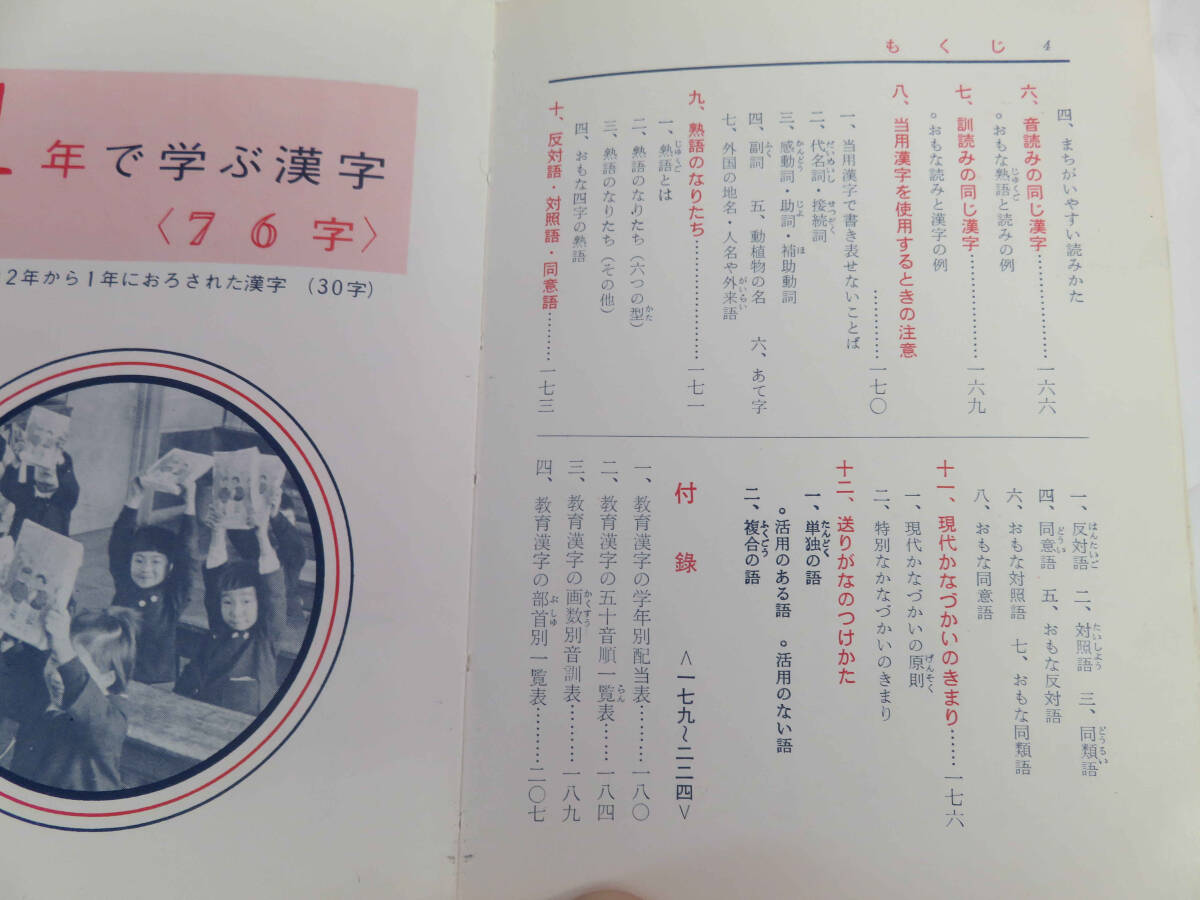 もくじ 4
四、まちがいやすい読みかた
六、音読みの同じ漢字…………一六六
。おもな熟語と読みの例
七、訓読みの同じ漢字…………一六九
。おもな読みと漢字の例
八、当用漢字を使用するときの注意
…………一七〇
一、当用漢字で書き表せないことば
二、代名詞・接続詞
三、感動詞・助詞・補助動詞
四、副詞 五、動植物の名 六、あて字
七、外国の地名・人名や外来語
九、熟語のなりたち…………一七一
一、熟語とは
二、熟語のなりたち（六つの型）
三、熟語のなりたち（その他）
四、おもな四字の熟語
十、反対語・対照語・同意語………一七三
一、反対語 二、対照語 三、同類語
四、同意語 五、おもな反対語
六、おもな対照語 七、おもな同類語
八、おもな同意語
十一、現代かなづかいのきまり……一七六
一、現代かなづかいの原則
二、特別なかなづかいのきまり
十二、送りがなのつけかた
一、単独の語
。活用のある語 。活用のない語
二、複合の語
付録 <一七九～二二四>
一、教育漢字の学年別配当表………一八〇
二、教育漢字の五十音順一覧表……一八四
三、教育漢字の画数別音訓表………一八九
四、教育漢字の部首別一覧表………二〇七
1年で学ぶ漢字
〈76字〉
2年から1年におろされた漢字 (30字)